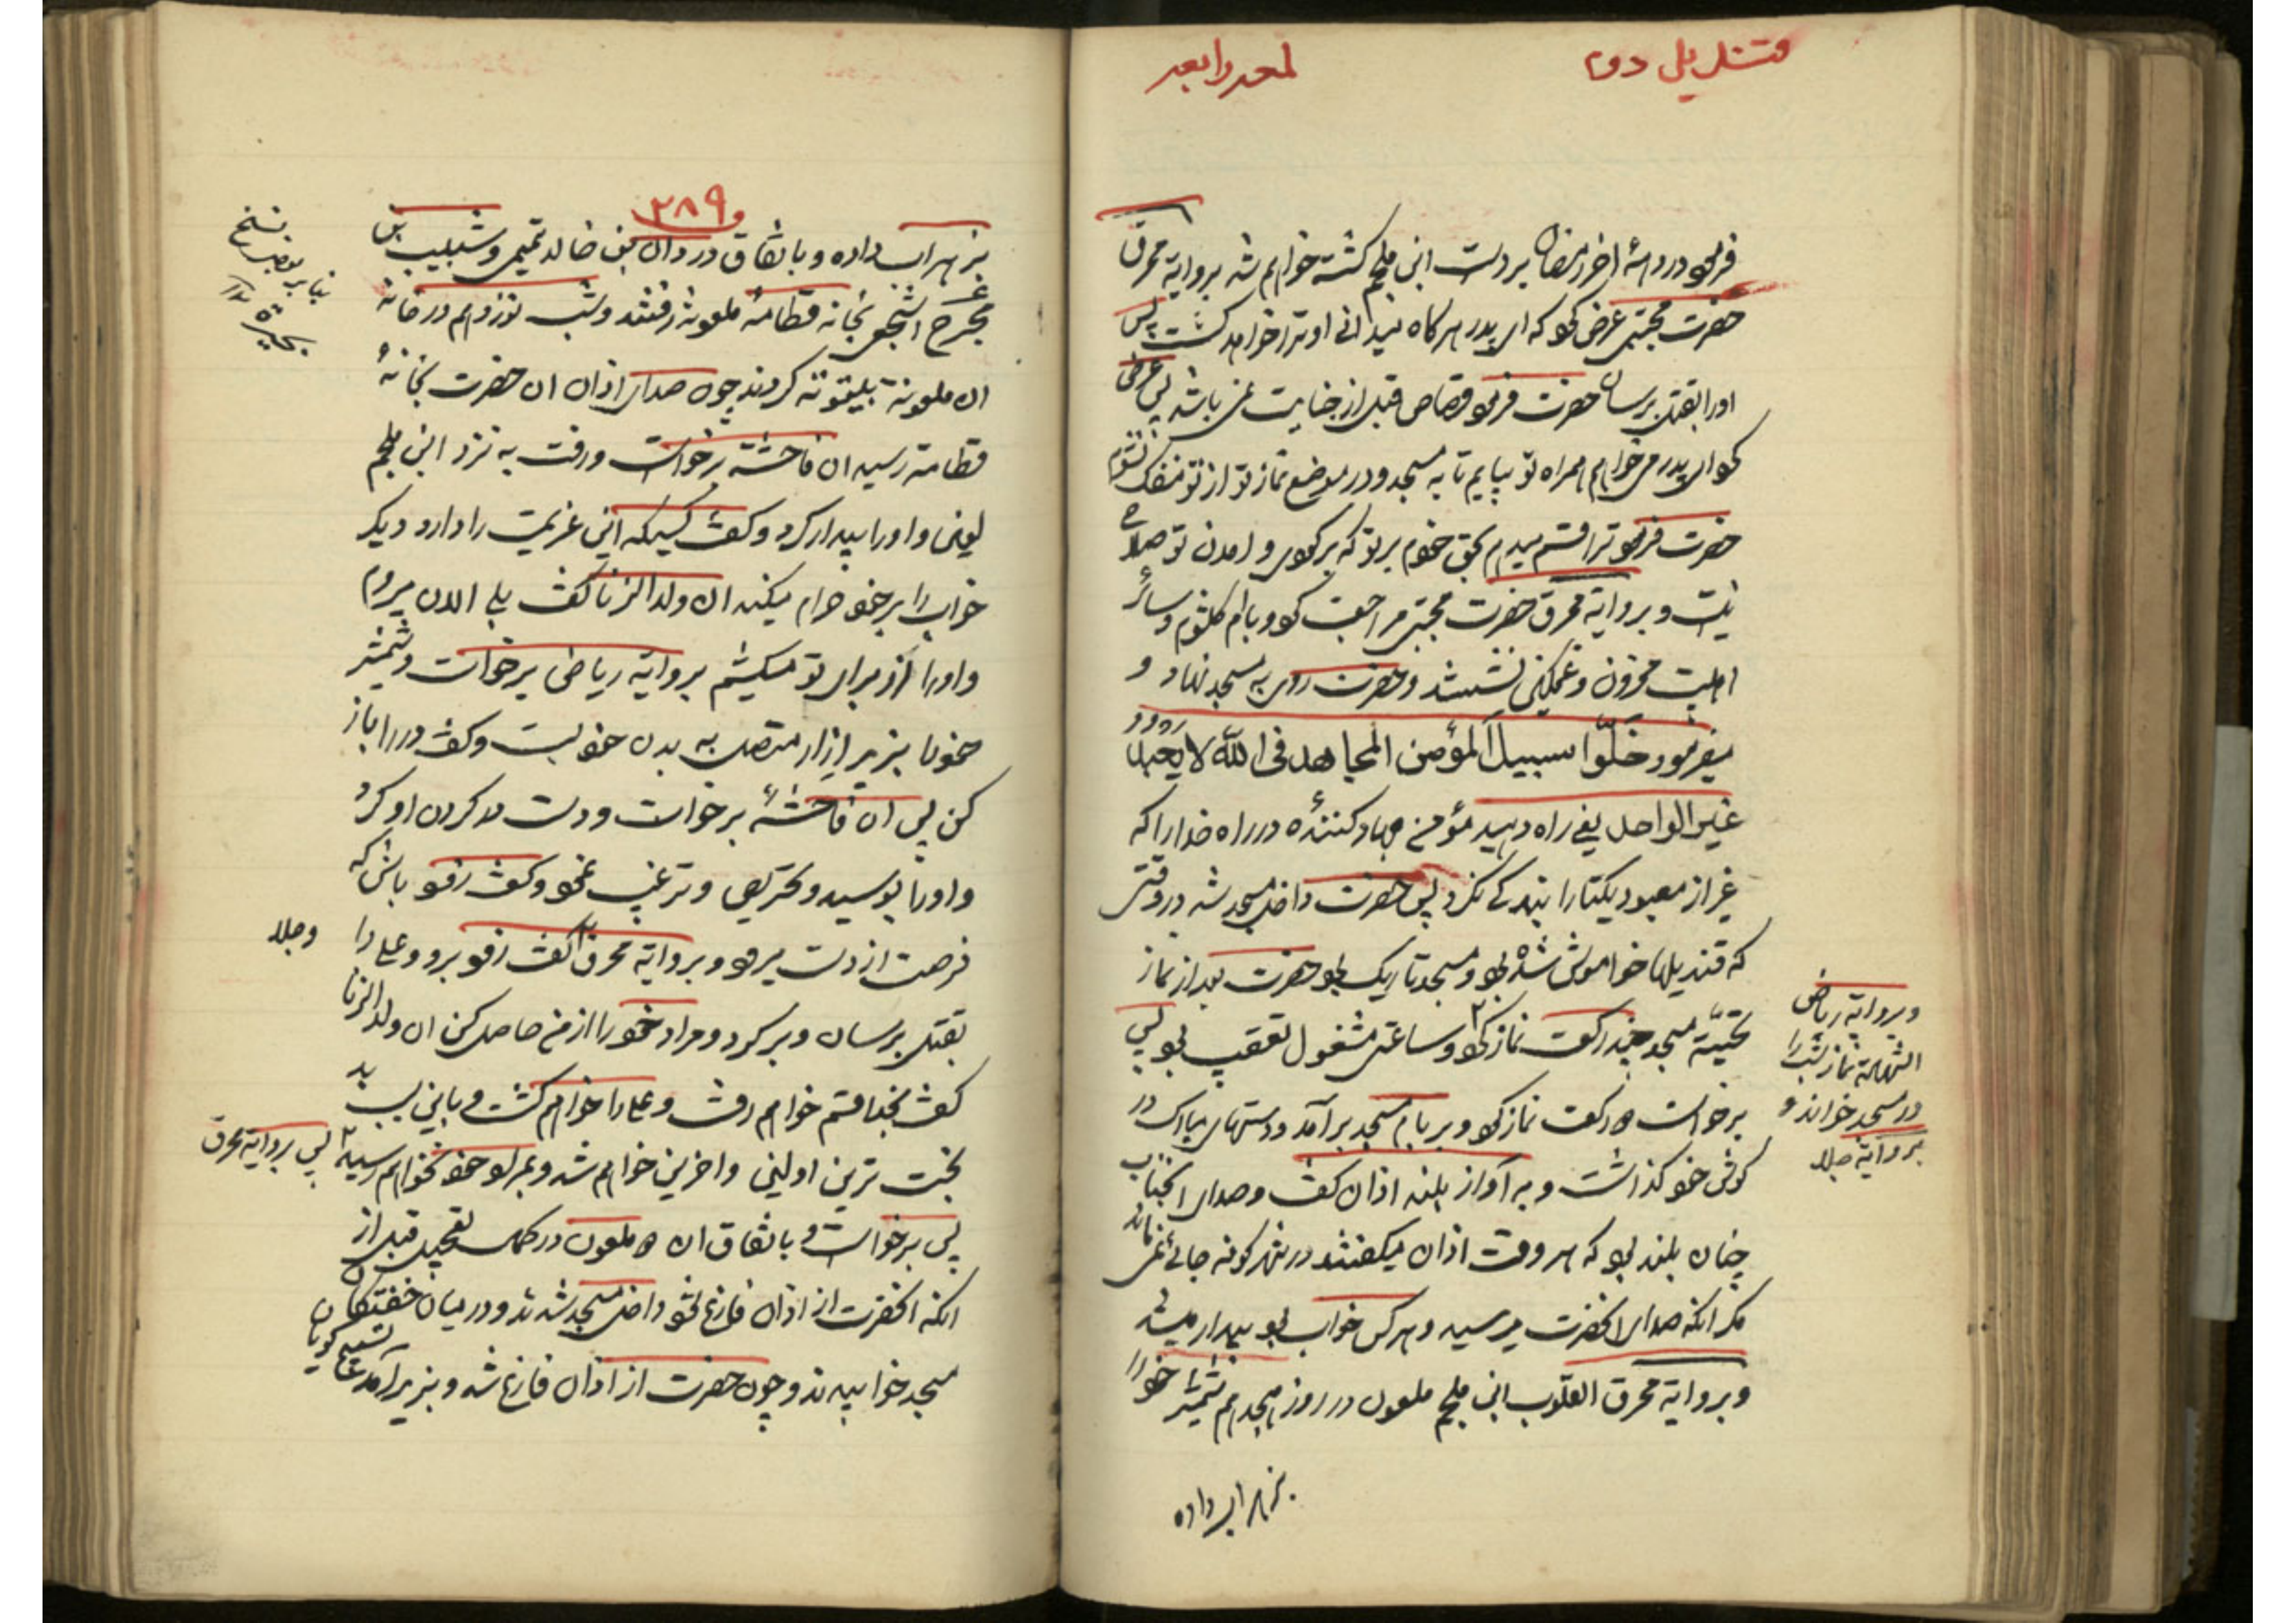 قندیل دوم
لمعه رابعه
فرمود در دههٔ اخر رمضان بر دست ابن ملجم کشته خواهم شد بروایة محرق
حضرت مجتبی عرض کرد که ای پدر هرگاه میدانی او ترا خواهد کشت پس
اورا بقتل برسان حضرت فرمود قصاص قبل از جنایت نمی باشد پس عرض
کرد ای پدر می خواهم همراه تو بیایم تا به مسجد و در موضع نماز تو از تو منفک نشوم
حضرت فرمود ترا قسم میدهم بحق خودم بر تو که برگردی و آمدن تو صلاح
نیست و بروایة محرق حضرت مجتبی مراجعت کرد و با ام کلثوم و سائر
اهلبیت محزون و غمگین نشستند و حضرت روی به مسجد نهاد و
میفرمود خَلّوا سبیلَ المؤمن المجاهد فی الله لا یعبد
غیر الواحد یعنی راه دهید مؤمن جهاد کنندهٔ در راه خدا را که
غیر از معبود یکتا را بندگی نکرد پس حضرت داخل مسجد شد در وقتی
که قندیلها خاموش شده بود و مسجد تاریک بود حضرت بعد از نماز
تحیّة مسجد چند رکعت نماز کرد و ساعتی مشغول تعقیب بود پس
برخواست ۲ رکعت نماز کرد و بر بام مسجد برآمد و دستهای مبارک در
گوش خود گذاشت و به آواز بلند اذان گفت و صدای انجناب
چنان بلند بود که هر وقت اذان میگفتند در شهر کوفه جائی نمی ماند
مگر انکه صدای انحضرت میرسید و هر کس خواب بود بیدار میشد
و بروایة محرق القلوب ابن ملجم ملعون در روز هیجدهم شمشیر خود را
بزهر اب داده
و بروایة ریاض
الشهادة نماز شب را
در مسجد خواند و
بروایة جلاء
۲۸۹
بزهر اب داده و باتفاق وردان بن خالد تمیمی و شبیب بن
بجرح اشجعی بخانه قطامهٔ ملعونه رفتند و شب نوزدهم در خانه
ان ملعونة بیتوته کردند چون صدای اذان ان حضرت بخانهٔ
قطامة رسید ان فاحشة برخواست و رفت به نزد ابن ملجم
لعین و اورا بیدار کرد و گفت کسیکه این عزیمت را دارد دیگر
خواب را بر خود حرام میکند ان ولد الزنا گفت بلی الان میروم
و اورا از برای تو میکشم بروایة ریاض برخواست و شمشیر
خود را بزیر ازار متصل به بدن خود بست و گفت در را باز
کن پس ان فاحشهٔ برخواست و دست در گردن او کرد
و اورا بوسید و تحریص و ترغیب نمود و گفت زود باش که
فرصت از دست میرود و بروایة محرق گفت زود برو و علی را
بقتل برسان و برگرد و مراد خود را از من حاصل کن ان ولد الزنا
گفت بخدا قسم خواهم رفت و علی را خواهم کشت و باین سبب بد
بخت ترین اولین و اخرین خواهم شد و بمراد خود نخواهم رسید
پس برخواست و باتفاق ان ۲ ملعون در کمال تعجیل قبل از
انکه انحضرت از اذان فارغ شود داخل مسجد شدند و در میان خفتگان
مسجد خوابیدند و چون حضرت از اذان فارغ شد و بزیر آمد تسبیح گویان
نسخ
بنا بر بعض
بجیرة
و جلاء
پس بروایة محرق